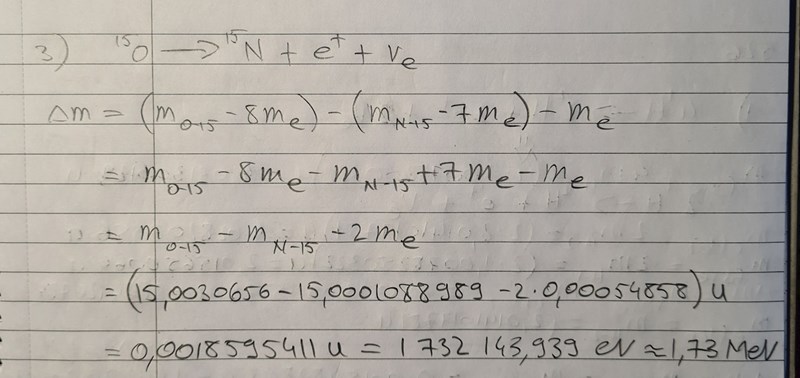 3) ¹⁵O → ¹⁵N + e⁺ + νe
Δm = (m_O-15 - 8me) - (m_N-15 - 7me) - me
= m_O-15 - 8me - m_N-15 + 7me - me
= m_O-15 - m_N-15 - 2me
= (15,0030656 - 15,0001088989 - 2·0,00054858) u
= 0,0018595411 u = 1 732 143,939 eV ≈ 1,73 MeV